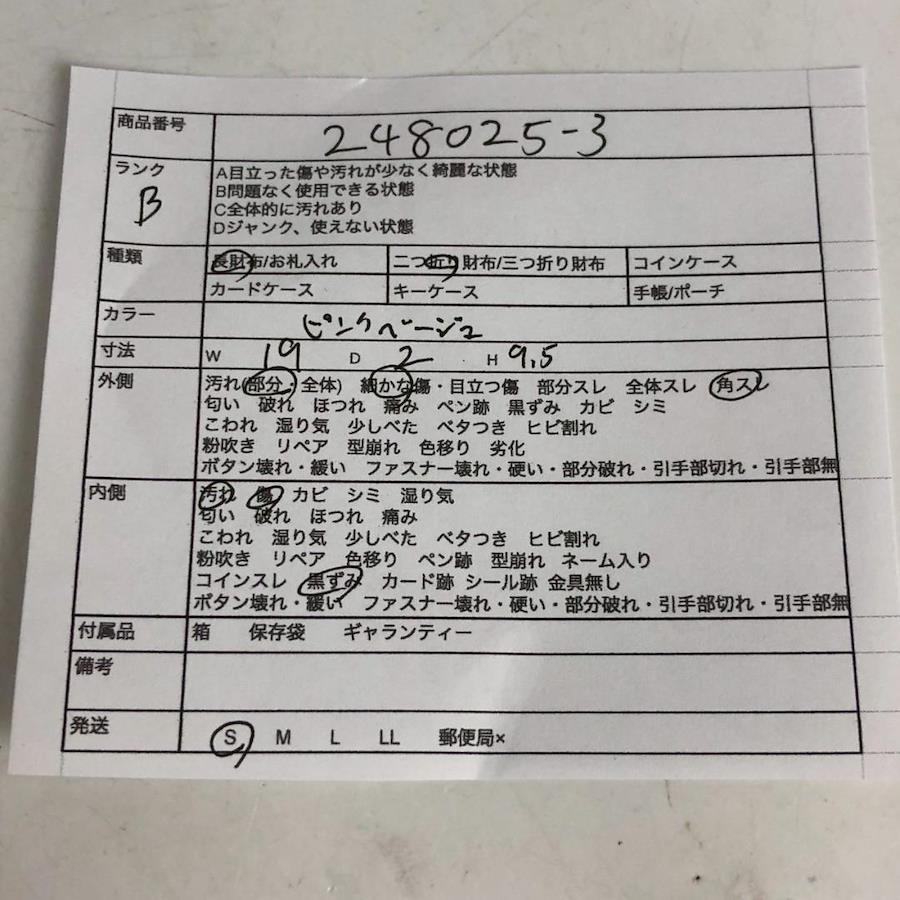 商品番号 248025-3
ランク B
A目立った傷や汚れが少なく綺麗な状態
B問題なく使用できる状態
C全体的に汚れあり
Dジャンク、使えない状態
種類 長財布/お札入れ 二つ折り財布/三つ折り財布 コインケース
カードケース キーケース 手帳/ポーチ
カラー ピンクベージュ
寸法 W 19 D 2 H 9.5
外側 汚れ(部分・全体) 細かな傷・目立つ傷 部分スレ 全体スレ 角スレ
匂い 破れ ほつれ 痛み ペン跡 黒ずみ カビ シミ
こわれ 湿り気 少しべた ベタつき ヒビ割れ
粉吹き リペア 型崩れ 色移り 劣化
ボタン壊れ・緩い ファスナー壊れ・硬い・部分破れ・引手部切れ・引手部無
内側 汚れ 傷 カビ シミ 湿り気
匂い 破れ ほつれ 痛み
こわれ 湿り気 少しべた ベタつき ヒビ割れ
粉吹き リペア 色移り ペン跡 型崩れ ネーム入り
コインスレ 黒ずみ カード跡 シール跡 金具無し
ボタン壊れ・緩い ファスナー壊れ・硬い・部分破れ・引手部切れ・引手部無
付属品 箱 保存袋 ギャランティー
備考
発送 S M L LL 郵便局×